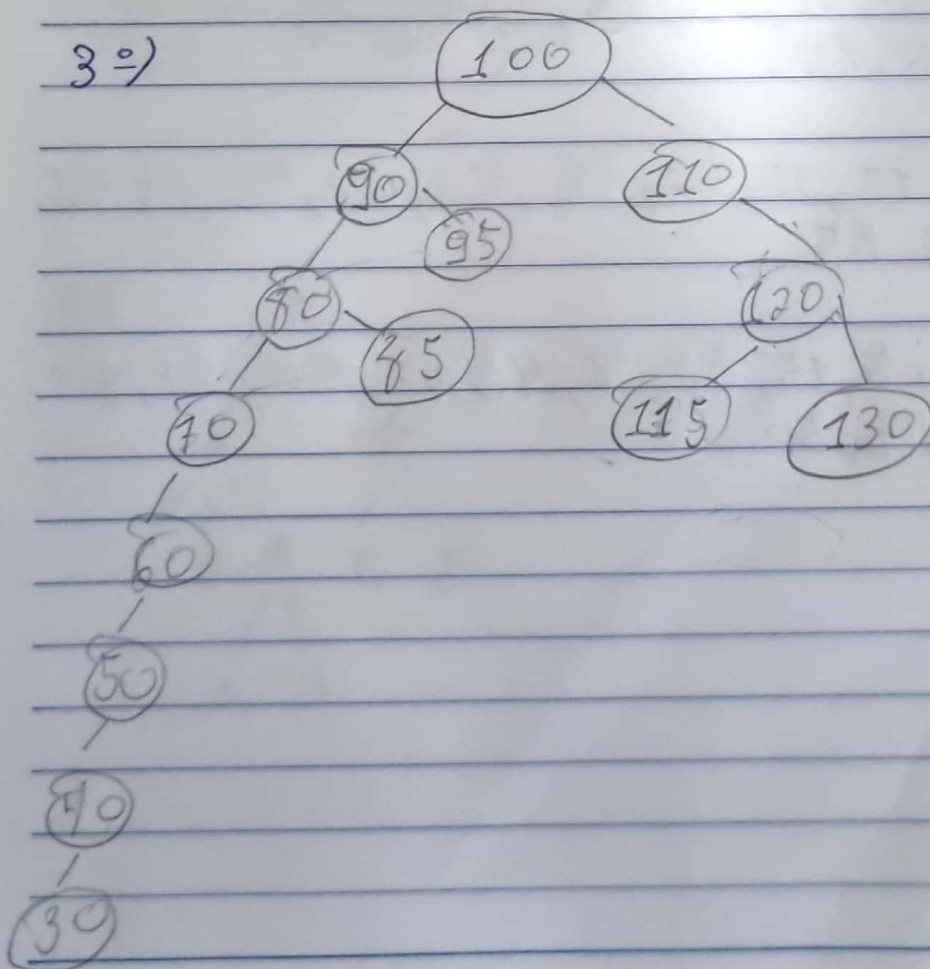 3º)
100
90 110
95
80 120
85
70 115 130
60
50
40
30